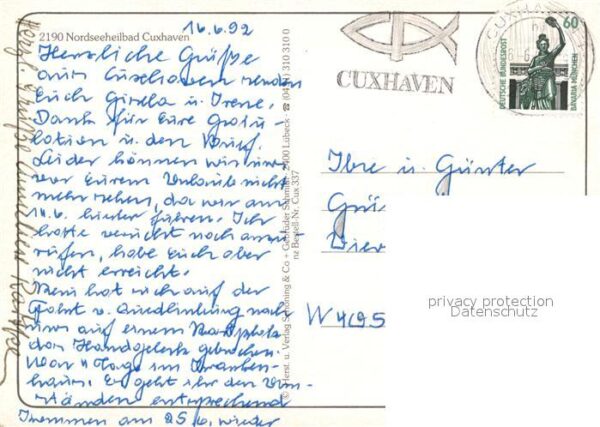 16.6.92
2190 Nordseeheilbad Cuxhaven
Herzliche Grüße
aus Cuxhaven senden
Euch Gisela u. Irene.
Dank für Eure Gratu-
lation u. den Brief.
Leider können wir uns
vor Eurem Urlaub nicht
mehr sehen, da wir am
14.6. hierher fuhren. Ich
hatte versucht noch anzu-
rufen, habe Euch aber
nicht erreicht.
hat sich auf der
Fahrt v. Quedlinburg nach
hier auf einem Parkplatz
das Handgelenk gebrochen.
War 4 Tage im Kranken-
haus. Es geht ihr den Um-
ständen entsprechend
kommen am 25.6. wieder
Herzl. Grüße
© Herst. u. Verlag Schöning & Co + Gebrüder Schmidt, 2400 Lübeck · ☎ (0451) 310 310 0
nz Bestell-Nr. Cux 337
CUXHAVEN
CUXHAVEN
60
DEUTSCHE BUNDESPOST
BAVARIA MÜNCHEN
u. Günter
W 495
privacy protection
Datenschutz